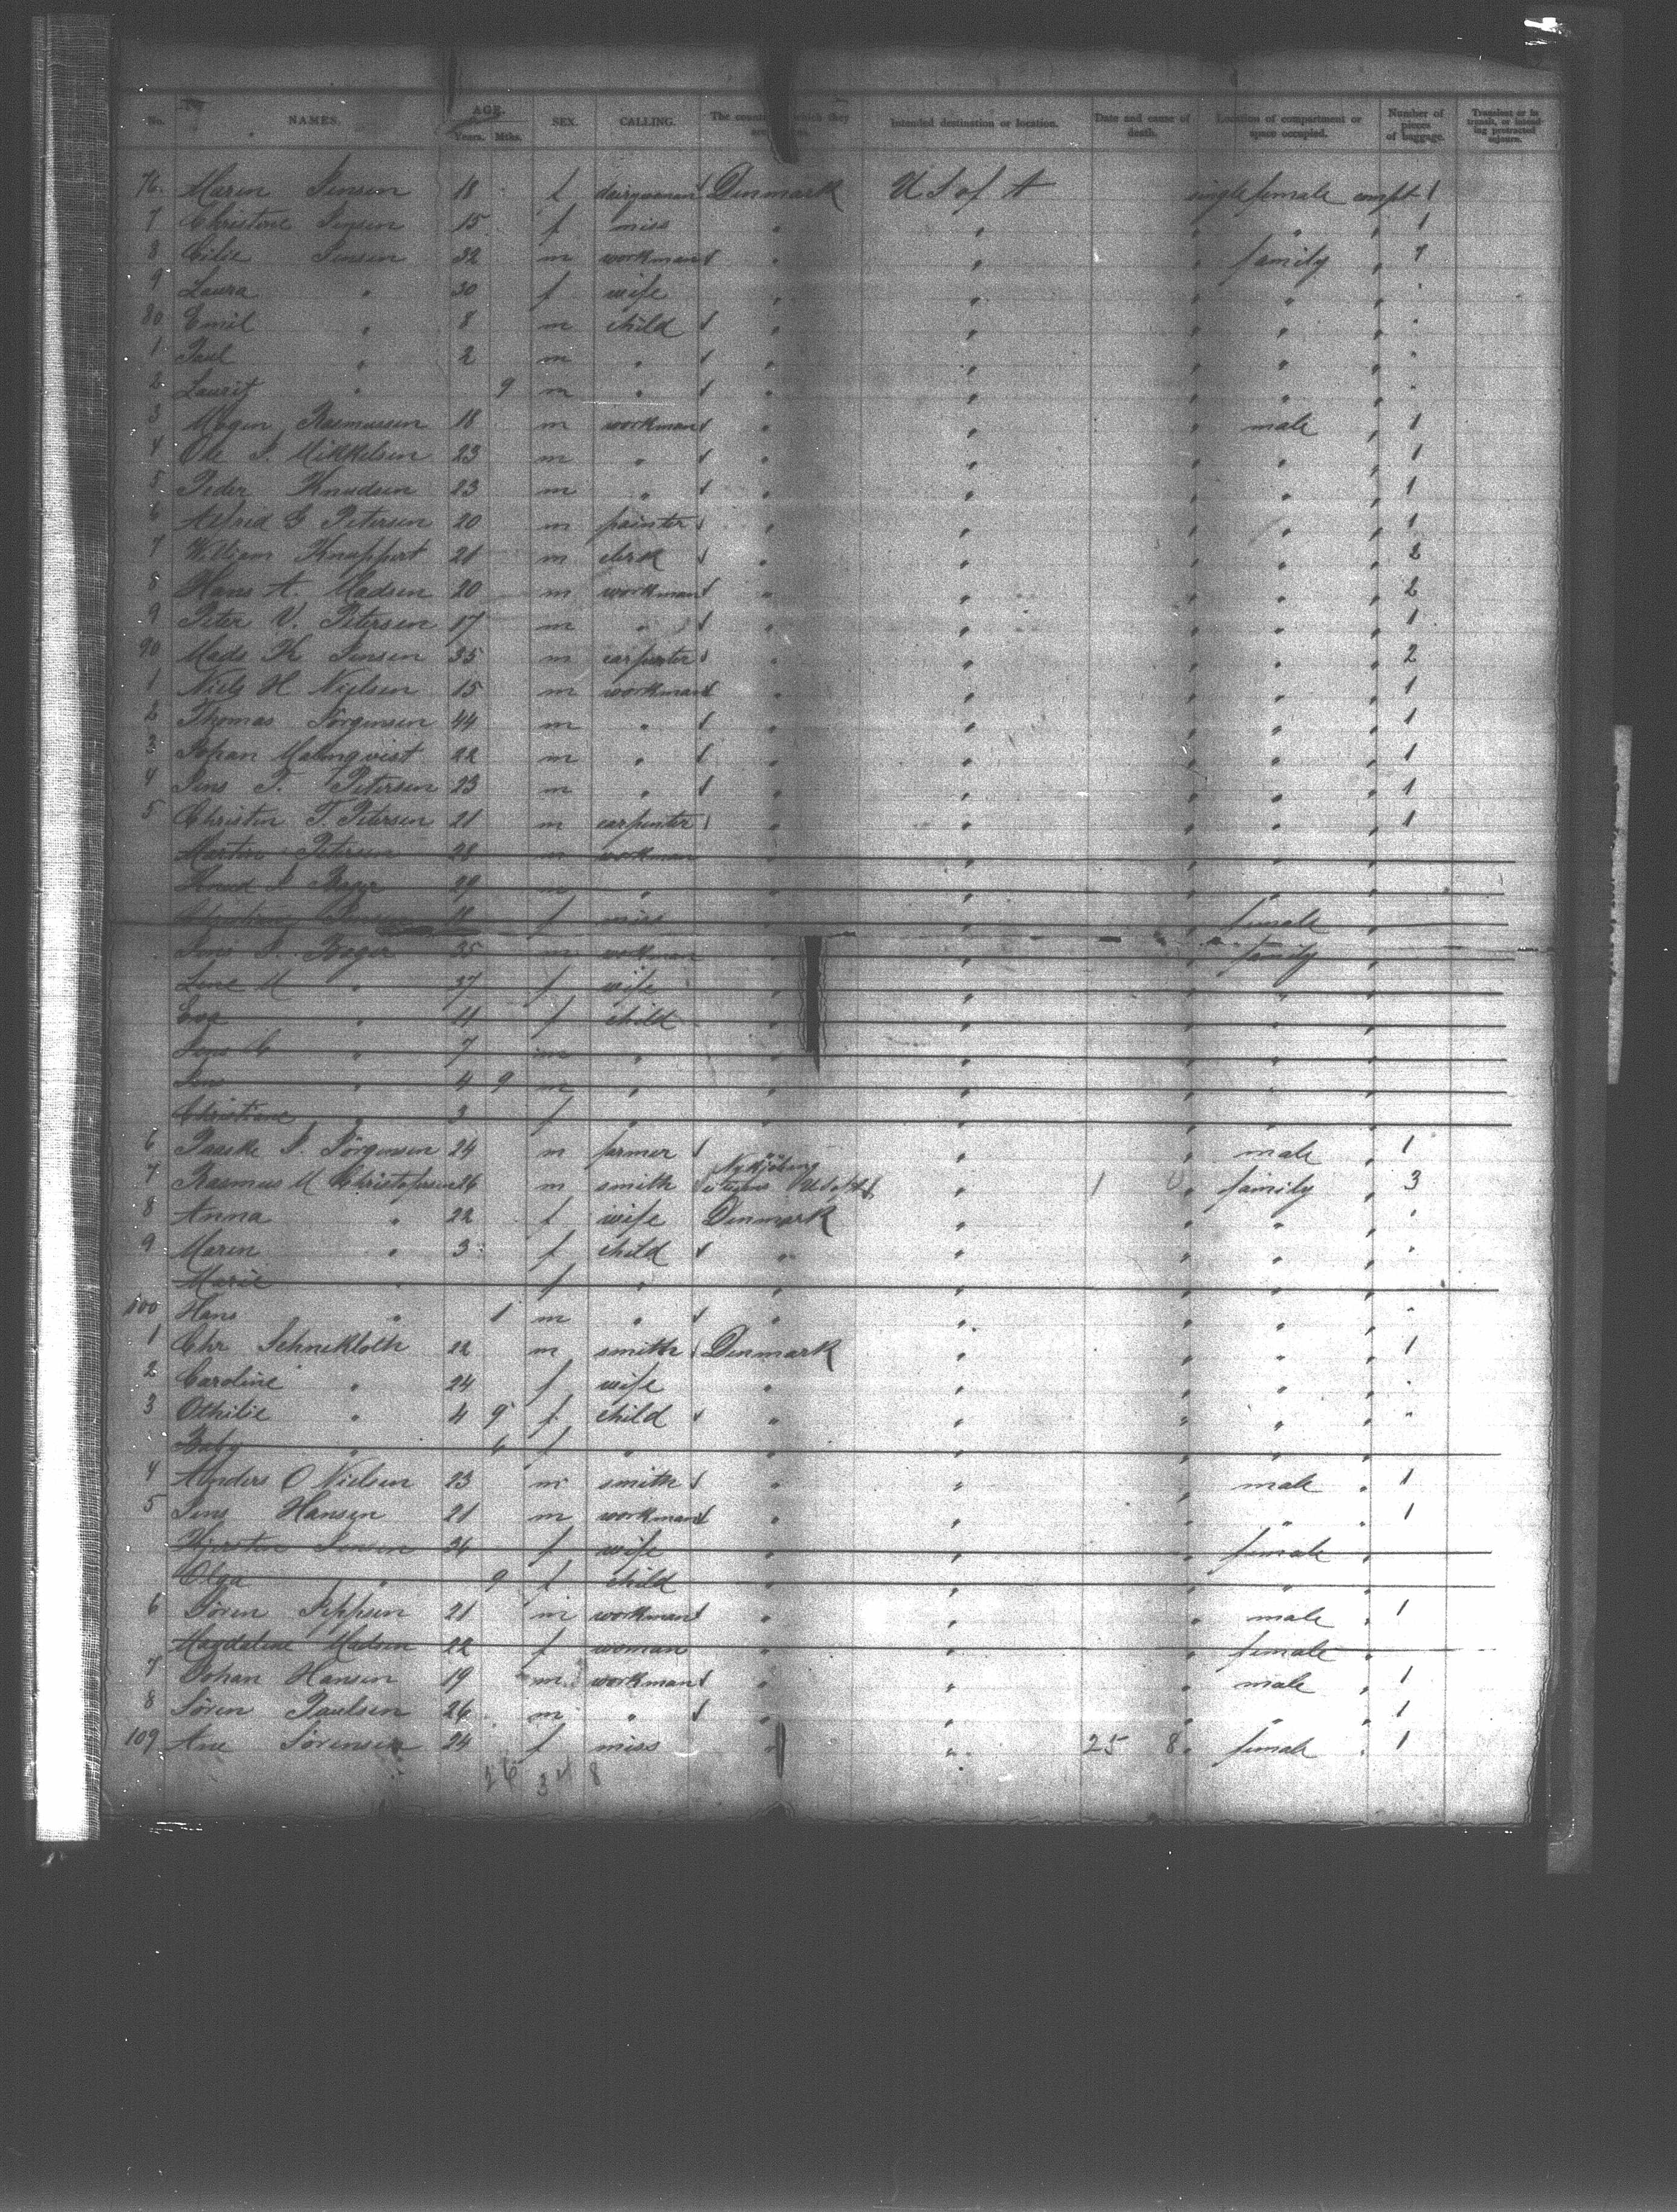 No. NAMES. AGE. Years. Mths. SEX. CALLING. The country which they Intended destination or location. Date and cause of death. Location of compartment or space occupied. Number of pieces of baggage. Transient or in transit, or intending protracted sojourn.
76. Maren Jensen 18 f Denmark U S of A single female compt 1
7 Christine Jensen 15 f miss " " " " " 1
8 Jensen 32 m workman " " " family " 7
9 Laura " 30 f wife " " " " " "
80 Emil " 8 m child " " " " " "
1 Paul " 2 m " " " " " " "
2 Laurit " 9 m " " " " " " "
3 Mogen Rasmussen 18 m workman " " " male " 1
4 Ole P. Mikkelsen 23 m " " " " " " 1
5 Peder Knudsen 23 m " " " " " " 1
6 Astrid E Petersen 20 m painter " " " " " 1
7 William Knuppert 21 m clerk " " " " " 2
8 Hans A. Madsen 20 m workman " " " " " 2
9 Peter V. Petersen 17 m " " " " " " 1
90 Mads K Jensen 35 m carpenter " " " " " 2
1 Niels H Nielsen 15 m workman " " " " " 1
2 Thomas Jörgensen 44 m " " " " " " 1
3 Johan Malmqvist 22 m " " " " " " 1
4 Jens T. Petersen 23 m " " " " " " 1
5 Christen T. Petersen 21 m carpenter " " " " " 1
Martin Petersen 28 m workman " " " " "
Knud Bager 29 m " " " " " "
Christiane Jensen f miss " " " female "
Jens P. Bager 35 m workman " " " family "
Lene M " 37 f wife " " " " "
Eva " 11 f child " " " " "
Jens C " 7 m " " " " " "
" 4 9 m " " " " " "
Christiane " 3 f " " " " "
6 Paaske P. Jörgensen 24 m farmer " " " male " 1
7 Rasmus M Christofersen 26 m smith Nykjöbing " 1 " family " 3
8 Anna " 22 f wife Denmark " " " " "
9 Maren " 3 f child " " " " " "
Marie " f " " " " "
100 Hans " 1 m " " " " " " "
1 Chr Schnekloth 22 m smith Denmark " " " " 1
2 Caroline " 24 f wife " " " " " "
3 Othilie " 4 9 f child " " " " " "
Baby " 6 f " " " " " "
4 Anders C Nielsen 23 m smith " " " male " 1
5 Jens Hansen 21 m workman " " " " " 1
Kirsten Jensen 36 f wife " " " female "
Olga " 9 f child " " " " "
6 Sören Jeppsen 21 m workman " " " male " 1
Magdalene Madsen 22 f woman " " " female "
7 Johan Hansen 19 m workman " " " male " 1
8 Sören Paulsen 26 m " " " " " " 1
109 Ane Sörensen 24 f miss " " 25 8 " female " 1